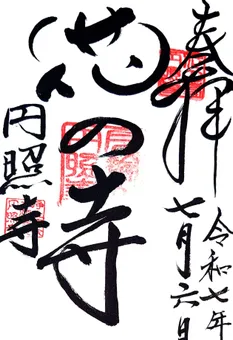 奉拝
令和七年
七月六日
花の寺
円照寺